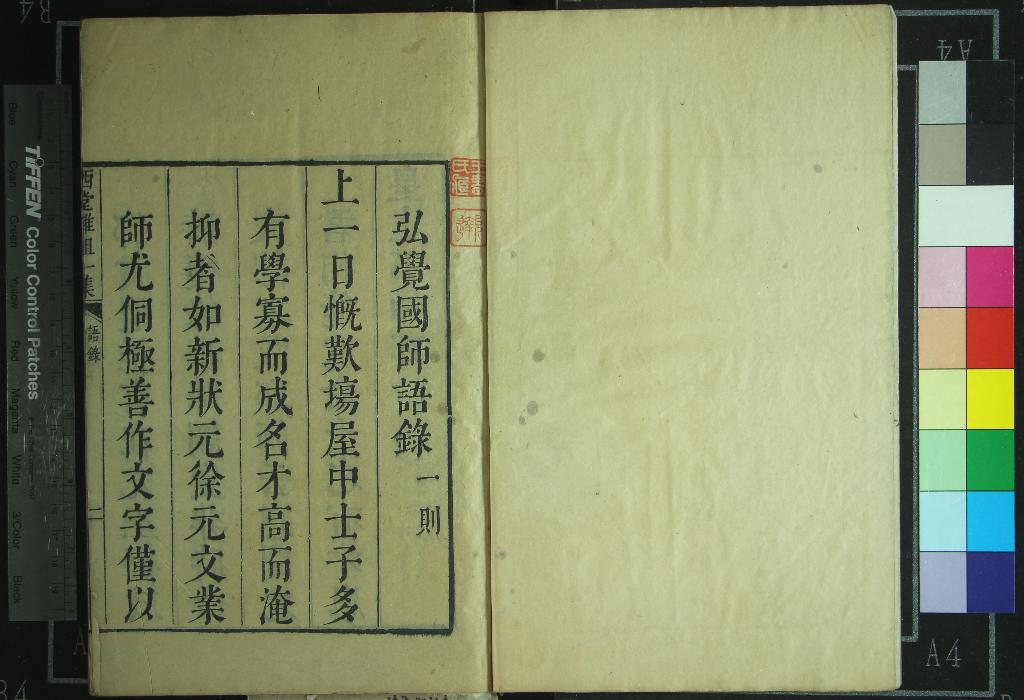 弘覺國師語錄一則
上一日慨歎塲屋中士子多
有學寡而成名才高而淹
抑者如新狀元徐元文業
師尤侗極善作文字僅以
西堂雜俎一集
語錄
二
TIFFEN Color Control Patches
Blue
Cyan
Green
Yellow
Red
Magenta
White
3/Color
Black
A4
A4